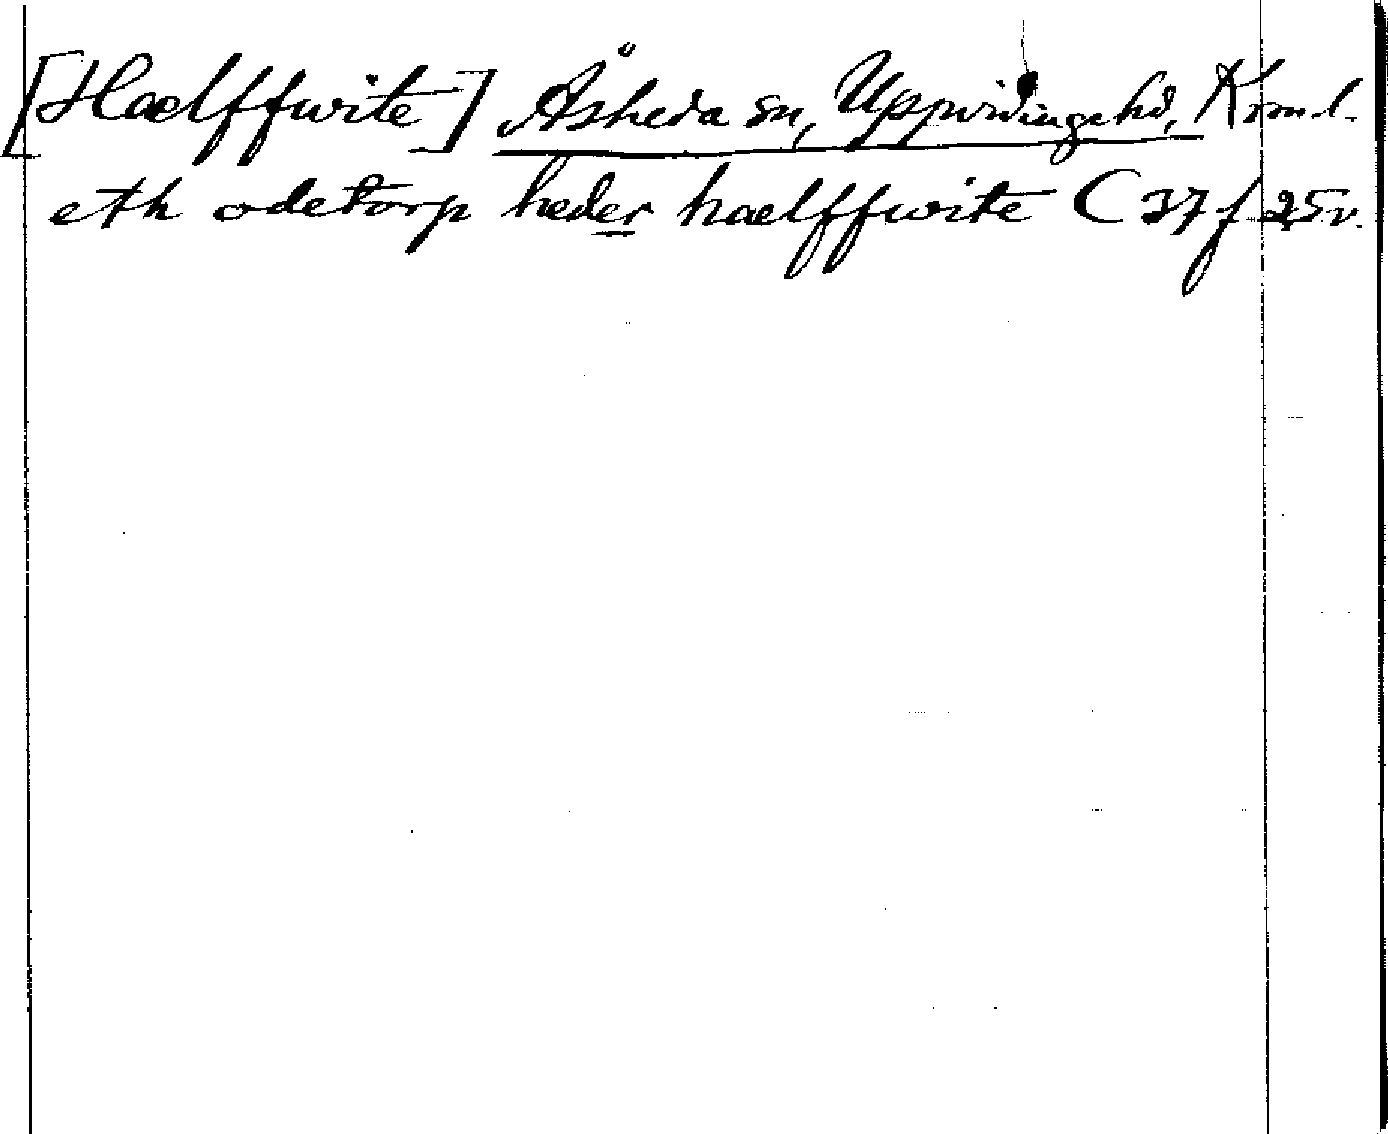 [Haelffwite] Åsheda sn, Uppvidinge hd, Kronl.
eth ödetorp heder haelffwite C 37 f 25 v.